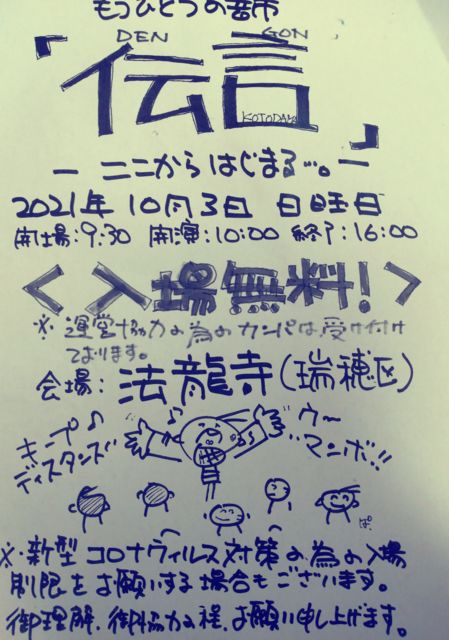 もうひとつの音市
DEN GON
「伝言」
KOTODAMA
ー ここからはじまる…。ー
2021年 10月3日 日曜日
開場:9:30 開演:10:00 終了:16:00
<入場無料!>
※運営協力の為のカンパは受け付け
ております。
会場: 法龍寺(瑞穂区)
キープ♪ ウ〜
ディスタンス マンボ!!
ぱ.
※・新型コロナウィルス対策の為の入場
制限をお願いする場合もございます。
御理解、御協力の程、お願い申し上げます。